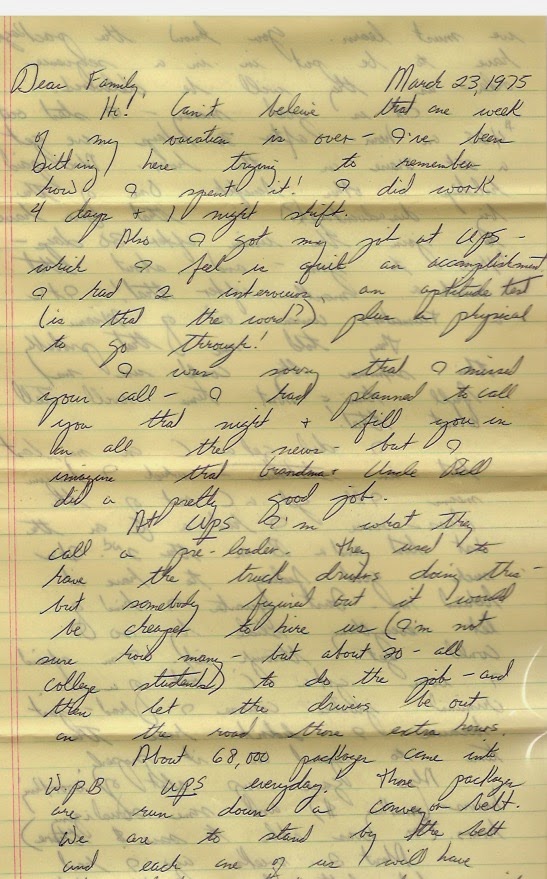 Dear Family, March 23, 1975
Hi! Can't beleive that one week
of my vacation is over - I've been
sitting here trying to remember
how I spent it! I did work
4 days + 1 night shift.
Also I got my job at UPS -
which I feel is quit an accomplishment
I had 2 interviews, an aptitude test
(is that the word?) plus a physical
to go through!
I was sorry that I missed
your call - I had planned to call
you that night + fill you in
on all the news - but I
imagine that Grandma + Uncle Bill
did a pretty good job.
At UPS I'm what they
call a pre-loader. They used to
have the truck drivers doing this -
but somebody figured out it would
be cheaper to hire us (I'm not
sure how many - but about 20 - all
college students) to do the job - and
then let the drivers be out
on the road those extra hours.
About 68,000 packages come into
W.P.B UPS everyday. Those packages
are run down a conveyor belt.
We are to stand by the belt
and each one of us will have